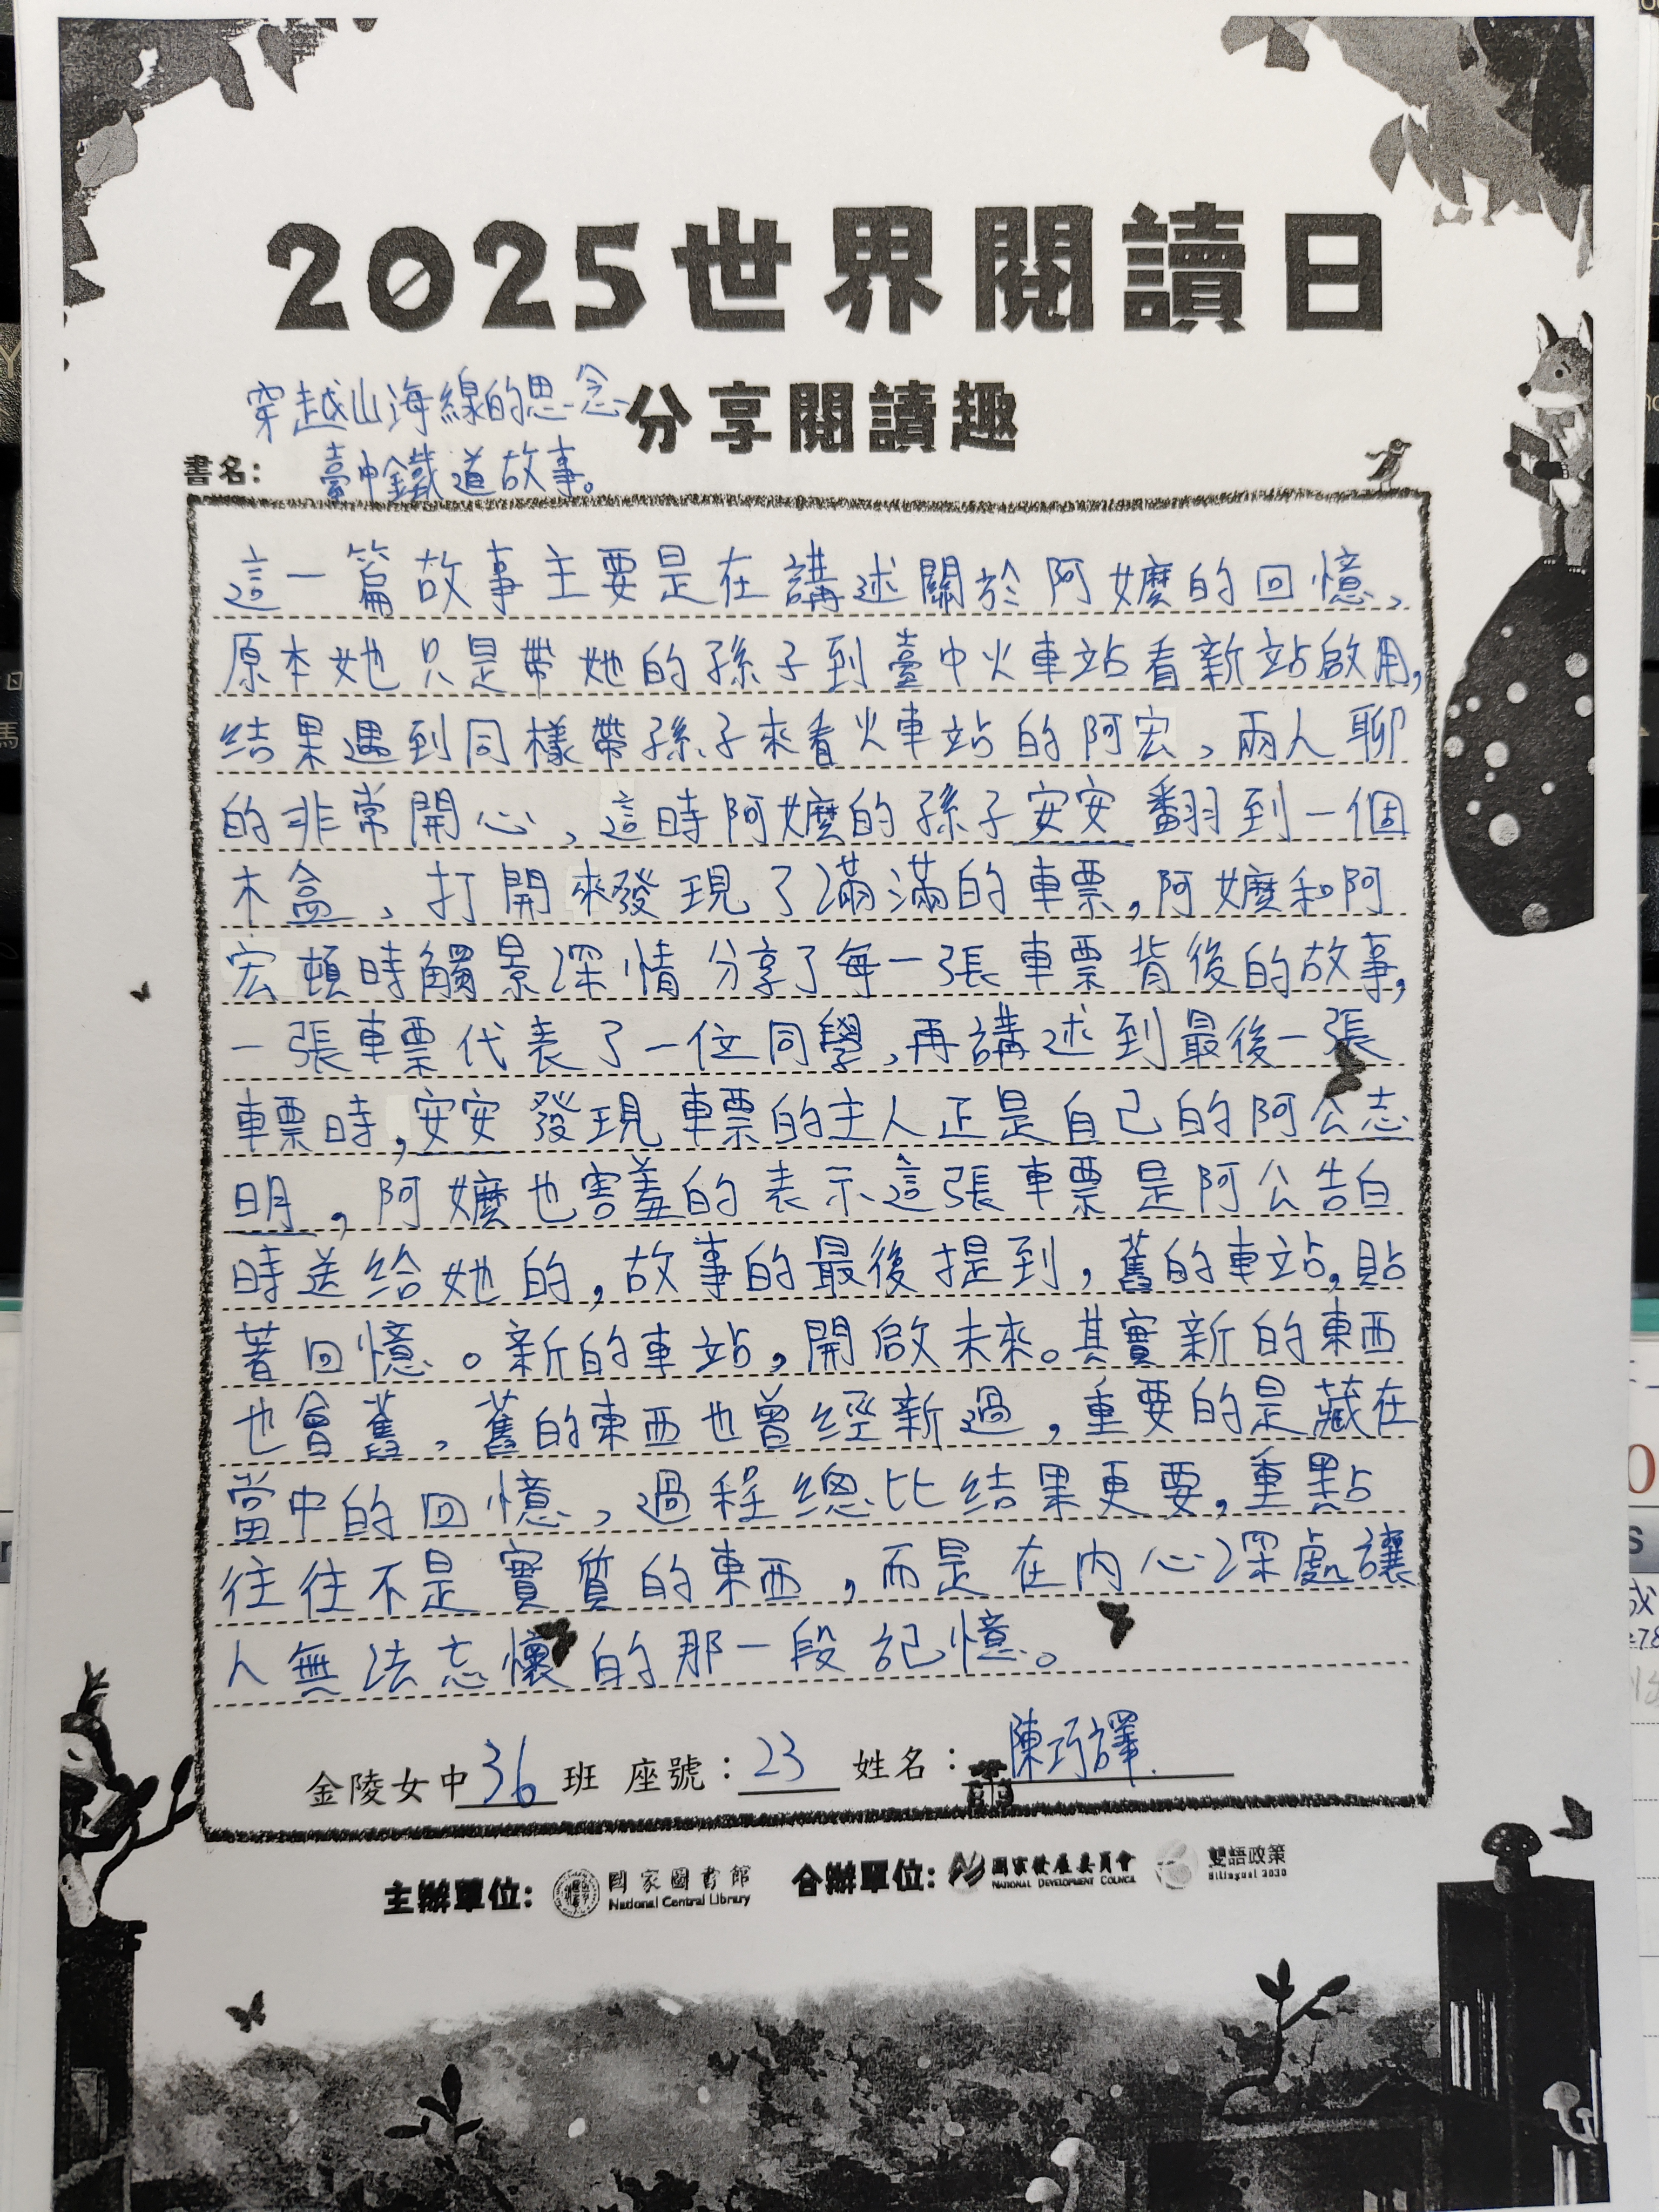 2025世界閱讀日
分享閱讀趣
書名：
穿越山海線的思念
臺中鐵道故事。
這一篇故事主要是在講述關於阿嬤的回憶、
原本她只是帶她的孫子到臺中火車站看新站啟用,
結果遇到同樣帶孫子來看火車站的阿宏、兩人聊
的非常開心、這時阿嬤的孫子安安翻到一個
木盒、打開來發現了滿滿的車票,阿嬤和阿
宏頓時觸景深情分享了每一張車票背後的故事,
一張車票代表了一位同學,再講述到最後一張
車票時,安安發現車票的主人正是自己的阿公志
明,阿嬤也害羞的表示這張車票是阿公告白
時送給她的,故事的最後提到,舊的車站,貼
著回憶。新的車站,開啟未來。其實新的東西
也會舊、舊的東西也曾經新過,重要的是藏在
當中的回憶、過程總比結果更要,重點
往往不是實質的東西,而是在內心深處讓
人無法忘懷的那一段記憶。
金陵女中36班 座號：23 姓名：陳巧譯.
主辦單位: 國家圖書館 National Central Library 合辦單位: 國家發展委員會 NATIONAL DEVELOPMENT COUNCIL 雙語政策 Bilingual 2030